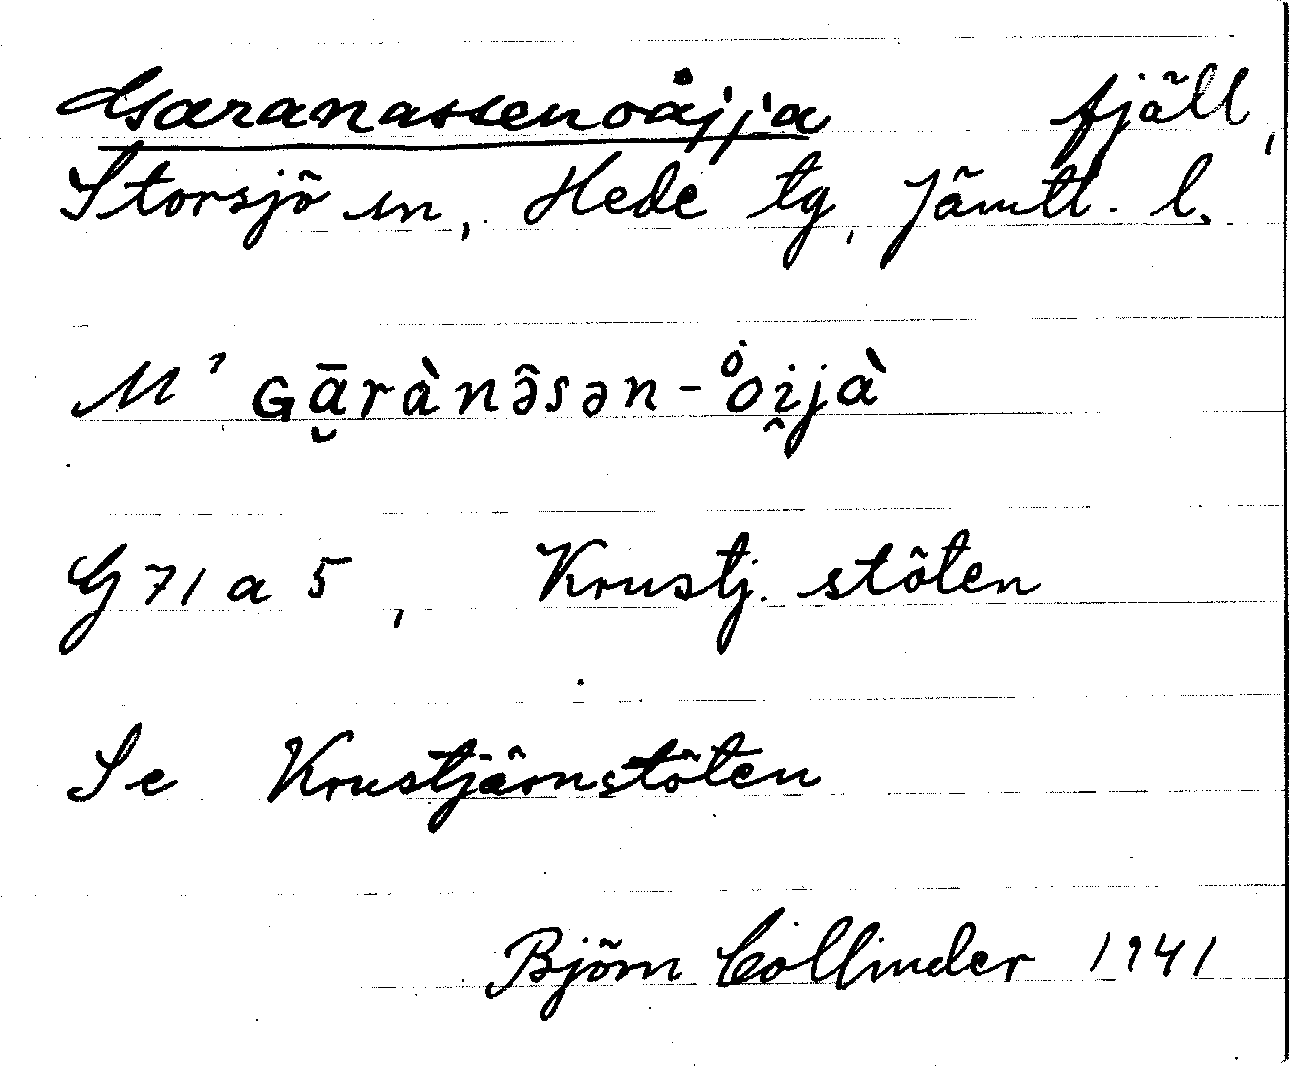 Garanassenoåjja fjäll,
Storsjö sn, Hede tg, Jämtl. l.
M' Gā̮rànə̑sən-o̊i̭jà
G 71 a 5, Krustj. stöten
Se Krustjärnstöten
Björn Collinder 1941